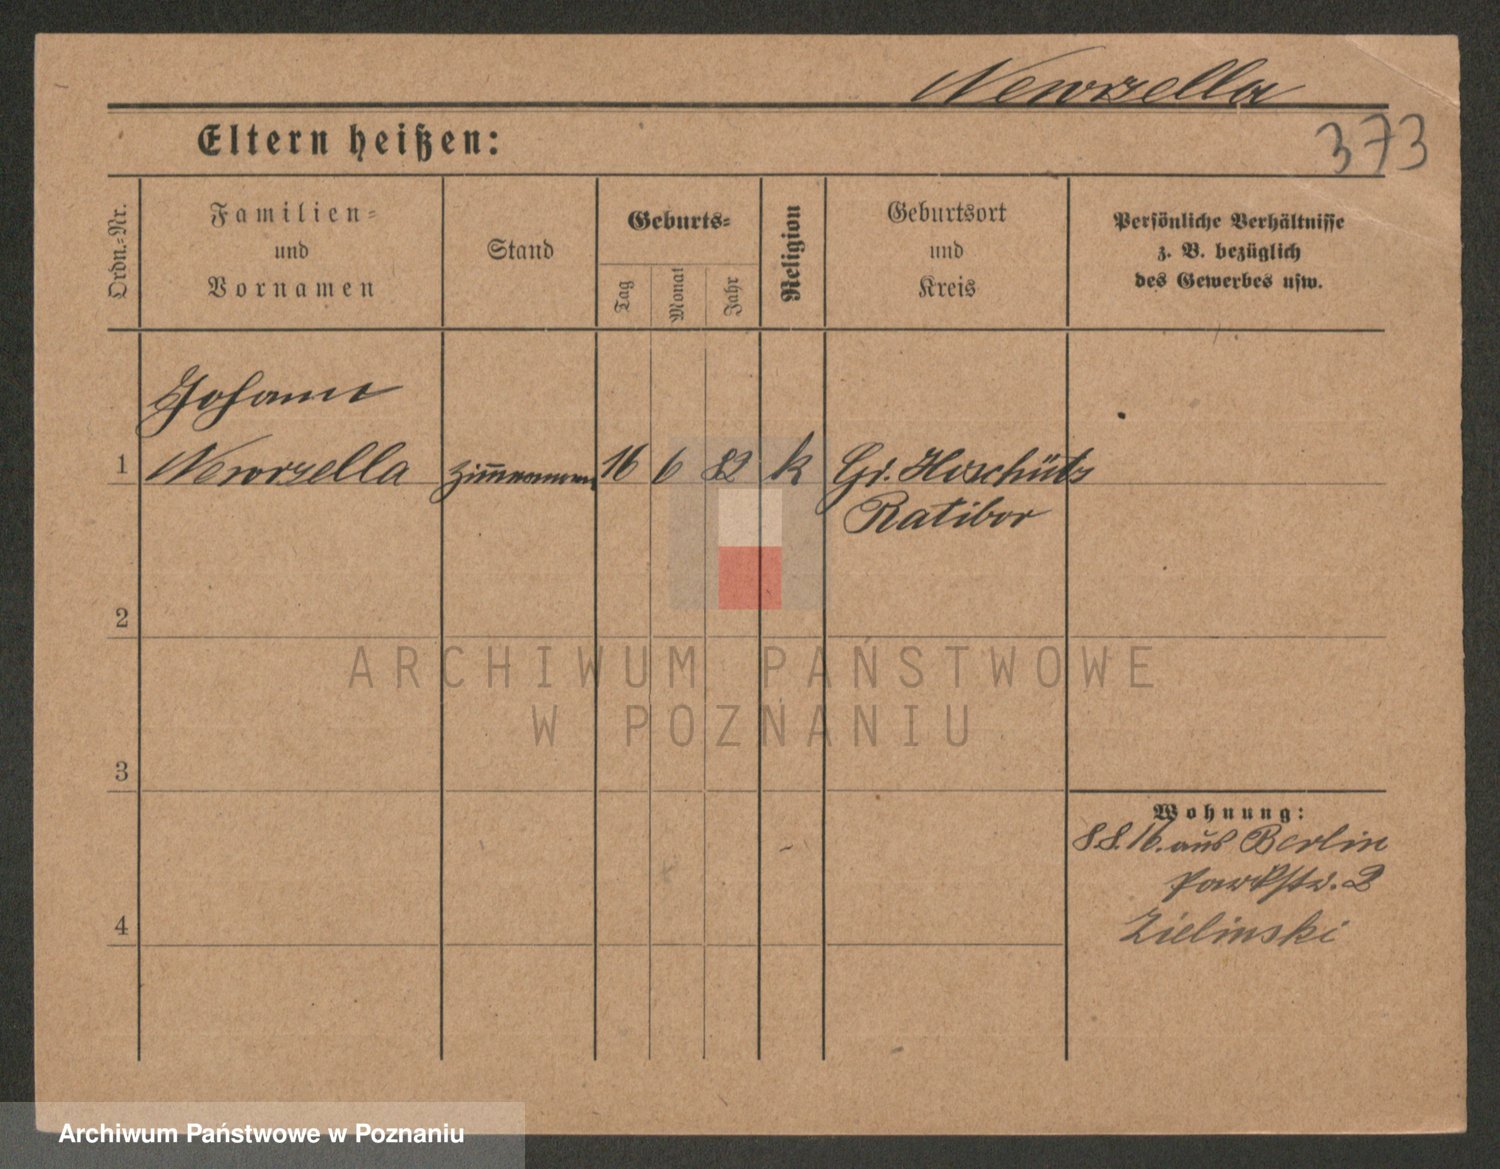 Newrzella
373
Eltern heißen:
Ordn.=Nr.
Familien=
und
Vornamen
Stand
Geburts=
Tag
Monat
Jahr
Religion
Geburtsort
und
Kreis
Persönliche Verhältnisse
z. B. bezüglich
des Gewerbes usw.
Johann
1 Newrzella 16 6 82 k Gr. Hoschütz
Ratibor
2
ARCHIWUM PAŃSTWOWE
W POZNANIU
3
Wohnung:
8.8.16. aus Berlin
Parkstr. 2
Zielinski
4
Archiwum Państwowe w Poznaniu